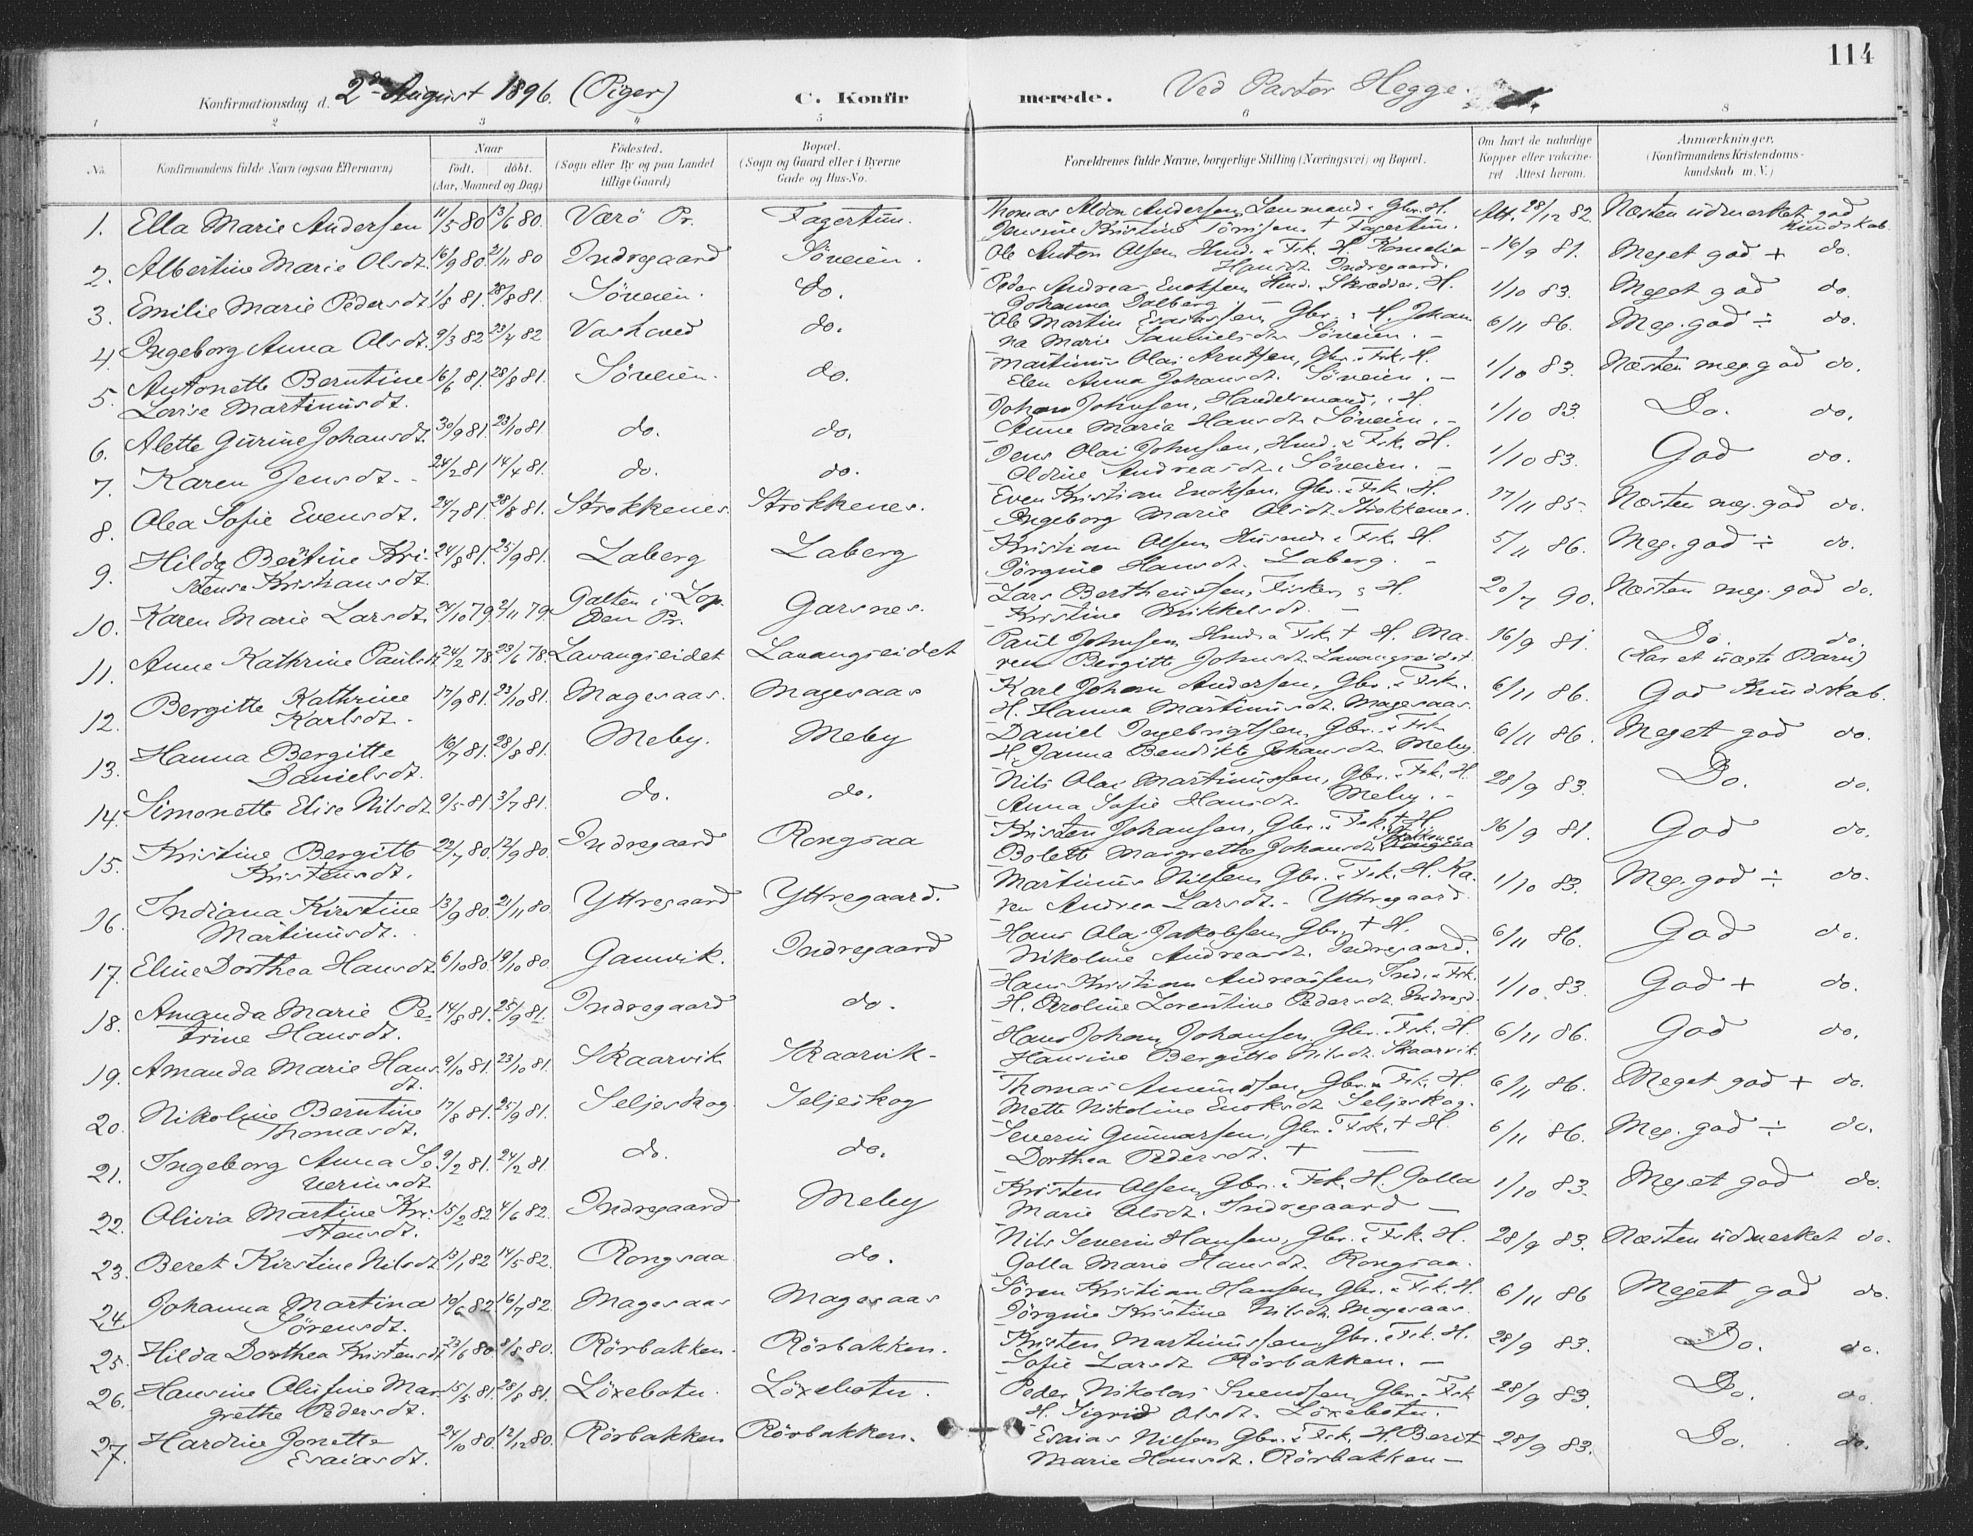 114
Konfirmationsdag d. 2den August 1896. (Piger) C. Konfirmerede. Ved Pastor Hegge.
1 2 3 4 5 6 8
No.
Konfirmandens fulde Navn (ogsaa Efternavn)
Naar
født. døbt.
(Aar, Maaned og Dag)
Fødested.
(Sogn eller By og paa Landet
tillige Gaard)
Bopæl.
(Sogn og Gaard eller i Byerne
Gade og Hus-No.
Forældrenes fulde Navne, borgerlige Stilling (Næringsvei) og Bopæl.
Om havt de naturlige
Kopper eller vaccine-
ret Attest herom.
Anmærkninger,
(Konfirmandens Kristendoms-
kundskab m. V.)
1. Ella Marie Andersen 11/5 80 13/6 80. Værö Pr. Fagertun. Thomas Andersen, Lensmand & Gbr. H. Att. 28/12 82. Næsten udmerket god
Jensine Kristine + Fagertun. Kundskab.
2. Albertine Marie Olsdt. 16/9 80. 21/11 80 Indregaard Söveien. Ole Anton Olsen Hmd. & Fsk. H. Kornelia - 16/9 81. Meget god + do.
Hansdt. Indregaard.
3. Emilie Marie Pedersdt. 1/8 81. 28/8 81. Söveien. do. Peder Andreas Enoksen Hmd. Skrædder. H. 1/10 83. Meget god do.
Johanna Dalberg -
4. Ingeborg Anna Olsdt. 9/3 82 23/4 82 Vashoved do. Ole Martin Gbr. : H. Johan 6/11 86. Meg. god ÷ do.
na Marie Samuelsdt. Söveien. -
5. Antonette Berntine 16/6 81. 28/8 81. Söveien. do. Martinus Olai Arntsen, Gbr. & Fsk. H. 1/10 83. Næsten meg. god do.
Lovise Martinusdt. Elen Anna Johansdt. Söveien. -
6. Alette Gurine Johansdt. 30/9 81. 23/10 81. do. do. Johan Johnsen, Handelsmand, H. 1/10 83. Do. do.
Anne Maria Hansdt. Söveien. -
7. Karen Jensdt. 24/2 81 14/4 81. do. do. Jens Olai Johnsen, Hmd. & Fsk. H. 1/10 83. God do.
Oldine Andreasdt. Söveien. -
8. Olea Sofie Evensdt. 24/7 81. 28/8 81. Strokkenes. Strokkenes. Even Kristian Enoksen, Gbr. & Fsk. H. 17/11 85- Næsten meg. god do.
Ingeborg Marie Olsdt. Strokkenes.
9. Hilda Berntine Kri- 24/8 81. 25/9 81. Laberg Laberg Kristian Olsen Husmd. & Fsk. H. 5/11 86. Meg. god ÷ do.
stense Kristiansdt. Jörgine Hansdt. Laberg. -
10. Karen Marie Larsdt. 24/10 79. 2/11 79. Galten i Lop- Garsnes. Lars Bertheussen, Fisker, & H. 20/7 90. Næsten meg. god do.
pen Pr. Kristine Mikkelsdt. -
11. Anne Kathrine Paulsdt. 24/2 78. 23/6 78. Lavangseidet Lavangseidet Paul Johnsen Hmd. & Fsk. + H. Ma- 16/9 81. Do. do.
ren Bergitte Johnsdt. Lavangseidet (Har et uægte Barn)
12. Bergitte Kathrine 17/9 81. 23/10 81. Magesaas. Magesaas Karl Johan Andersen, Gbr. & Fsk. 6/11 86. God Kundskab.
Karlsdt. - H. Hanna Martinusdt. Magesaas.
13. Hanna Bergitte 16/7 81. 28/8 81. Meby. Meby Daniel Ingebrigtsen, Gbr. & Fsk 6/11 86. Meget god do.
Danielsdt. H. Janna Bendikte Johansdt. Meby.
14. Simonette Elise Nilsdt. 9/5 81. 3/7 81. do. do. Nils Olai Martinussen, Gbr. & Fsk. H. 28/9 83. Do. do.
Anna Sofie Hansdt. Meby. -
15. Kristine Bergitte 22/7 80. 12/9 80. Indregaard Rongsaa Kristen Johansen, Gbr. & Fsk. + H. 26/9 81. God do.
Kristensdt. Bolette Margrethe Johansdt. Rongsaa
16. Indiana Kirstine 13/9 80. 21/11 80. Yttregaard Yttregaard. Martinus Nilsen Gbr. & Fsk. H. Ka- 1/10 83. Meg. god ÷ do.
Martinusdt. ren Andrea Larsdt. - Yttregaard
17. Eline Dorthea Hansdt. 6/10 80. 19/10 80. Gamvik. Indregaard Hans Olai Jakobsen Gbr. + H. 6/11 86. God do.
Nikoline Andreasdt. Indregaard.
18. Amanda Marie Pe- 14/8 81. 25/9 81. Indregaard do. Hans Kristian Andreassen, Ind. & Fsk. 1/10 83. God + do.
trine Hansdt. H. Caroline Lorentine Pedersdt. Indregd.
19. Amanda Marie Hans- 9/10 81. 23/10 81. Skaarvik Skaarvik- Hans Johan Johansen, Gbr. & Fsk. H. 6/11 86. God do.
dt. Hansine Bergitte Nilsdt. Skaarvik.
20. Nikoline Berntine 17/8 81. 25/9 81. Seljeskog Seljeskog Thomas Amundsen, Gbr. & Fsk. H. 6/11 86. Meget god + do.
Thomasdt. Mette Nikoline Enoksdt. Seljeskog.
21. Ingeborg Anna Se- 9/2 81. 24/2 81. do. do. Severin Gunnarsen, Gbr. & Fsk. + H. 6/11 86. Meg. god ÷ do.
verinsdt. Dorthea Pedersdt. +
22. Olivia Martine Kri- 15/2 82 4/6 82. Indregaard Meby Kristen Olsen, Gbr. & Fsk. H. Golla 1/10 83. Meget god do.
stensdt. Marie Olsdt. Indregaard -
23. Beret Kirstine Nilsdt. 13/1 82 14/5 82. Rongsaa do. Nils Severin Hansen, Gbr. & Fsk. H. 28/9 83. Næsten udmerket do.
Golla Marie Hansdt. Rongsaa.
24. Johanna Martina 10/6 82. 16/7 82. Magesaas Magesaas Sören Kristian Hansen, Gbr. & Fsk. H. 6/11 86 Meget god do.
Sörensdt. Jörgine Kristine Nilsdt. Magesaas.
25. Hilda Dorthea Kristensdt. 23/6 80. 8/8 80. Rörbakken. Rörbakken. Kristen Martinussen, Gbr. & Fsk. H. 28/9 83. Do. do.
Sofie Larsdt. Rörbakken. -
26. Hansine Olufine Mar- 15/5 81. 28/8 81. Löxebotn. Löxebotn. Peder Nikolai Svendsen Gbr. & Fsk 28/9 83. Do. do
grethe Pedersdt. H. Sigrid Olsdt. Löxebotn.
27. Hardine Jonette 24/10 80. 12/12 80. Rörbakken Rörbakken. Esaias Nilsen, Gbr. & Fsk. H. Berit 28/9 83. Do. do.
Esaiasdt. Marie Hansdt. Rörbakken -